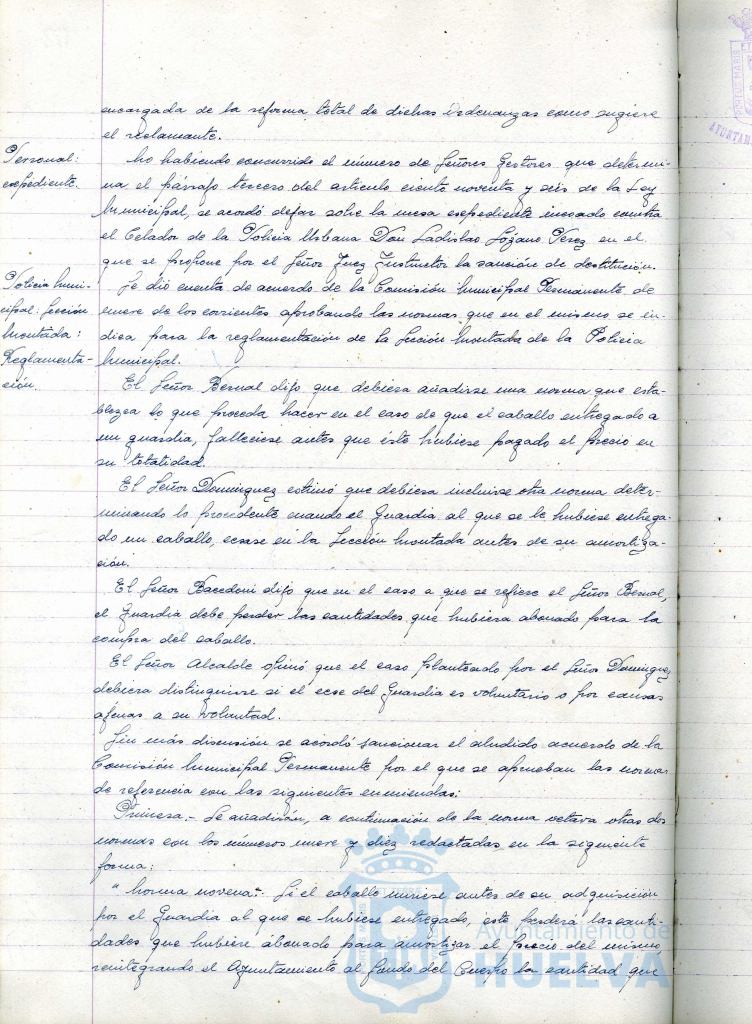 encargada de la reforma total de dichas Ordenanzas como sugiere
el reclamante.
Personal:
expediente.
No habiendo concurrido el número de Señores Gestores que determi-
na el párrafo tercero del artículo ciento noventa y seis de la Ley
Municipal, se acordó dejar sobre la mesa expediente incoado contra
el Celador de la Policía Urbana Don Ladislao Lozano Perez en el
que se propone por el Señor Juez Instructor la sanción de destitución.
Policía Muni-
cipal: Sección
Montada:
Reglamenta-
ción.
Se dió cuenta de acuerdo de la Comisión Municipal Permanente, de
nueve de los corrientes aprobando las normas que en el mismo se in-
dica para la reglamentación de la Sección Montada de la Policía
Municipal.
El Señor Bernal dijo que debiera añadirse una norma que esta-
blezca lo que proceda hacer en el caso de que el caballo entregado a
un guardia, falleciese antes que éste hubiese pagado el precio en
su totalidad.
El Señor Dominguez estimó que debiera incluirse otra norma deter-
minando lo procedente cuando el Guardia al que se le hubiese entrega-
do un caballo, cesase en la Sección Montada antes de su amortiza-
ción.
El Señor Bacedoni dijo que en el caso a que se refiere el Señor Bernal,
el Guardia debe perder las cantidades que hubiera abonado para la
compra del caballo.
El Señor Alcalde opinó que el caso planteado por el Señor Dominguez
debiera distinguirse si el cese del Guardia es voluntario o por causas
ajenas a su voluntad.
Sin más discusión se acordó sancionar el aludido acuerdo de la
Comisión Municipal Permanente por el que se aprueban las normas
de referencia con las siguientes enmiendas:
Primera.- Se añadirán, a continuación de la norma octava otras dos
normas con los números nueve y diez redactadas en la siguiente
forma:
"Norma novena".- Si el caballo muriese antes de su adquisición
por el Guardia al que se hubiese entregado, éste perderá las canti-
dades que hubiere abonado para amortizar el precio del mismo
reintegrando el Ayuntamiento al fondo del Cuerpo la cantidad que
Ayuntamiento de
HUELVA